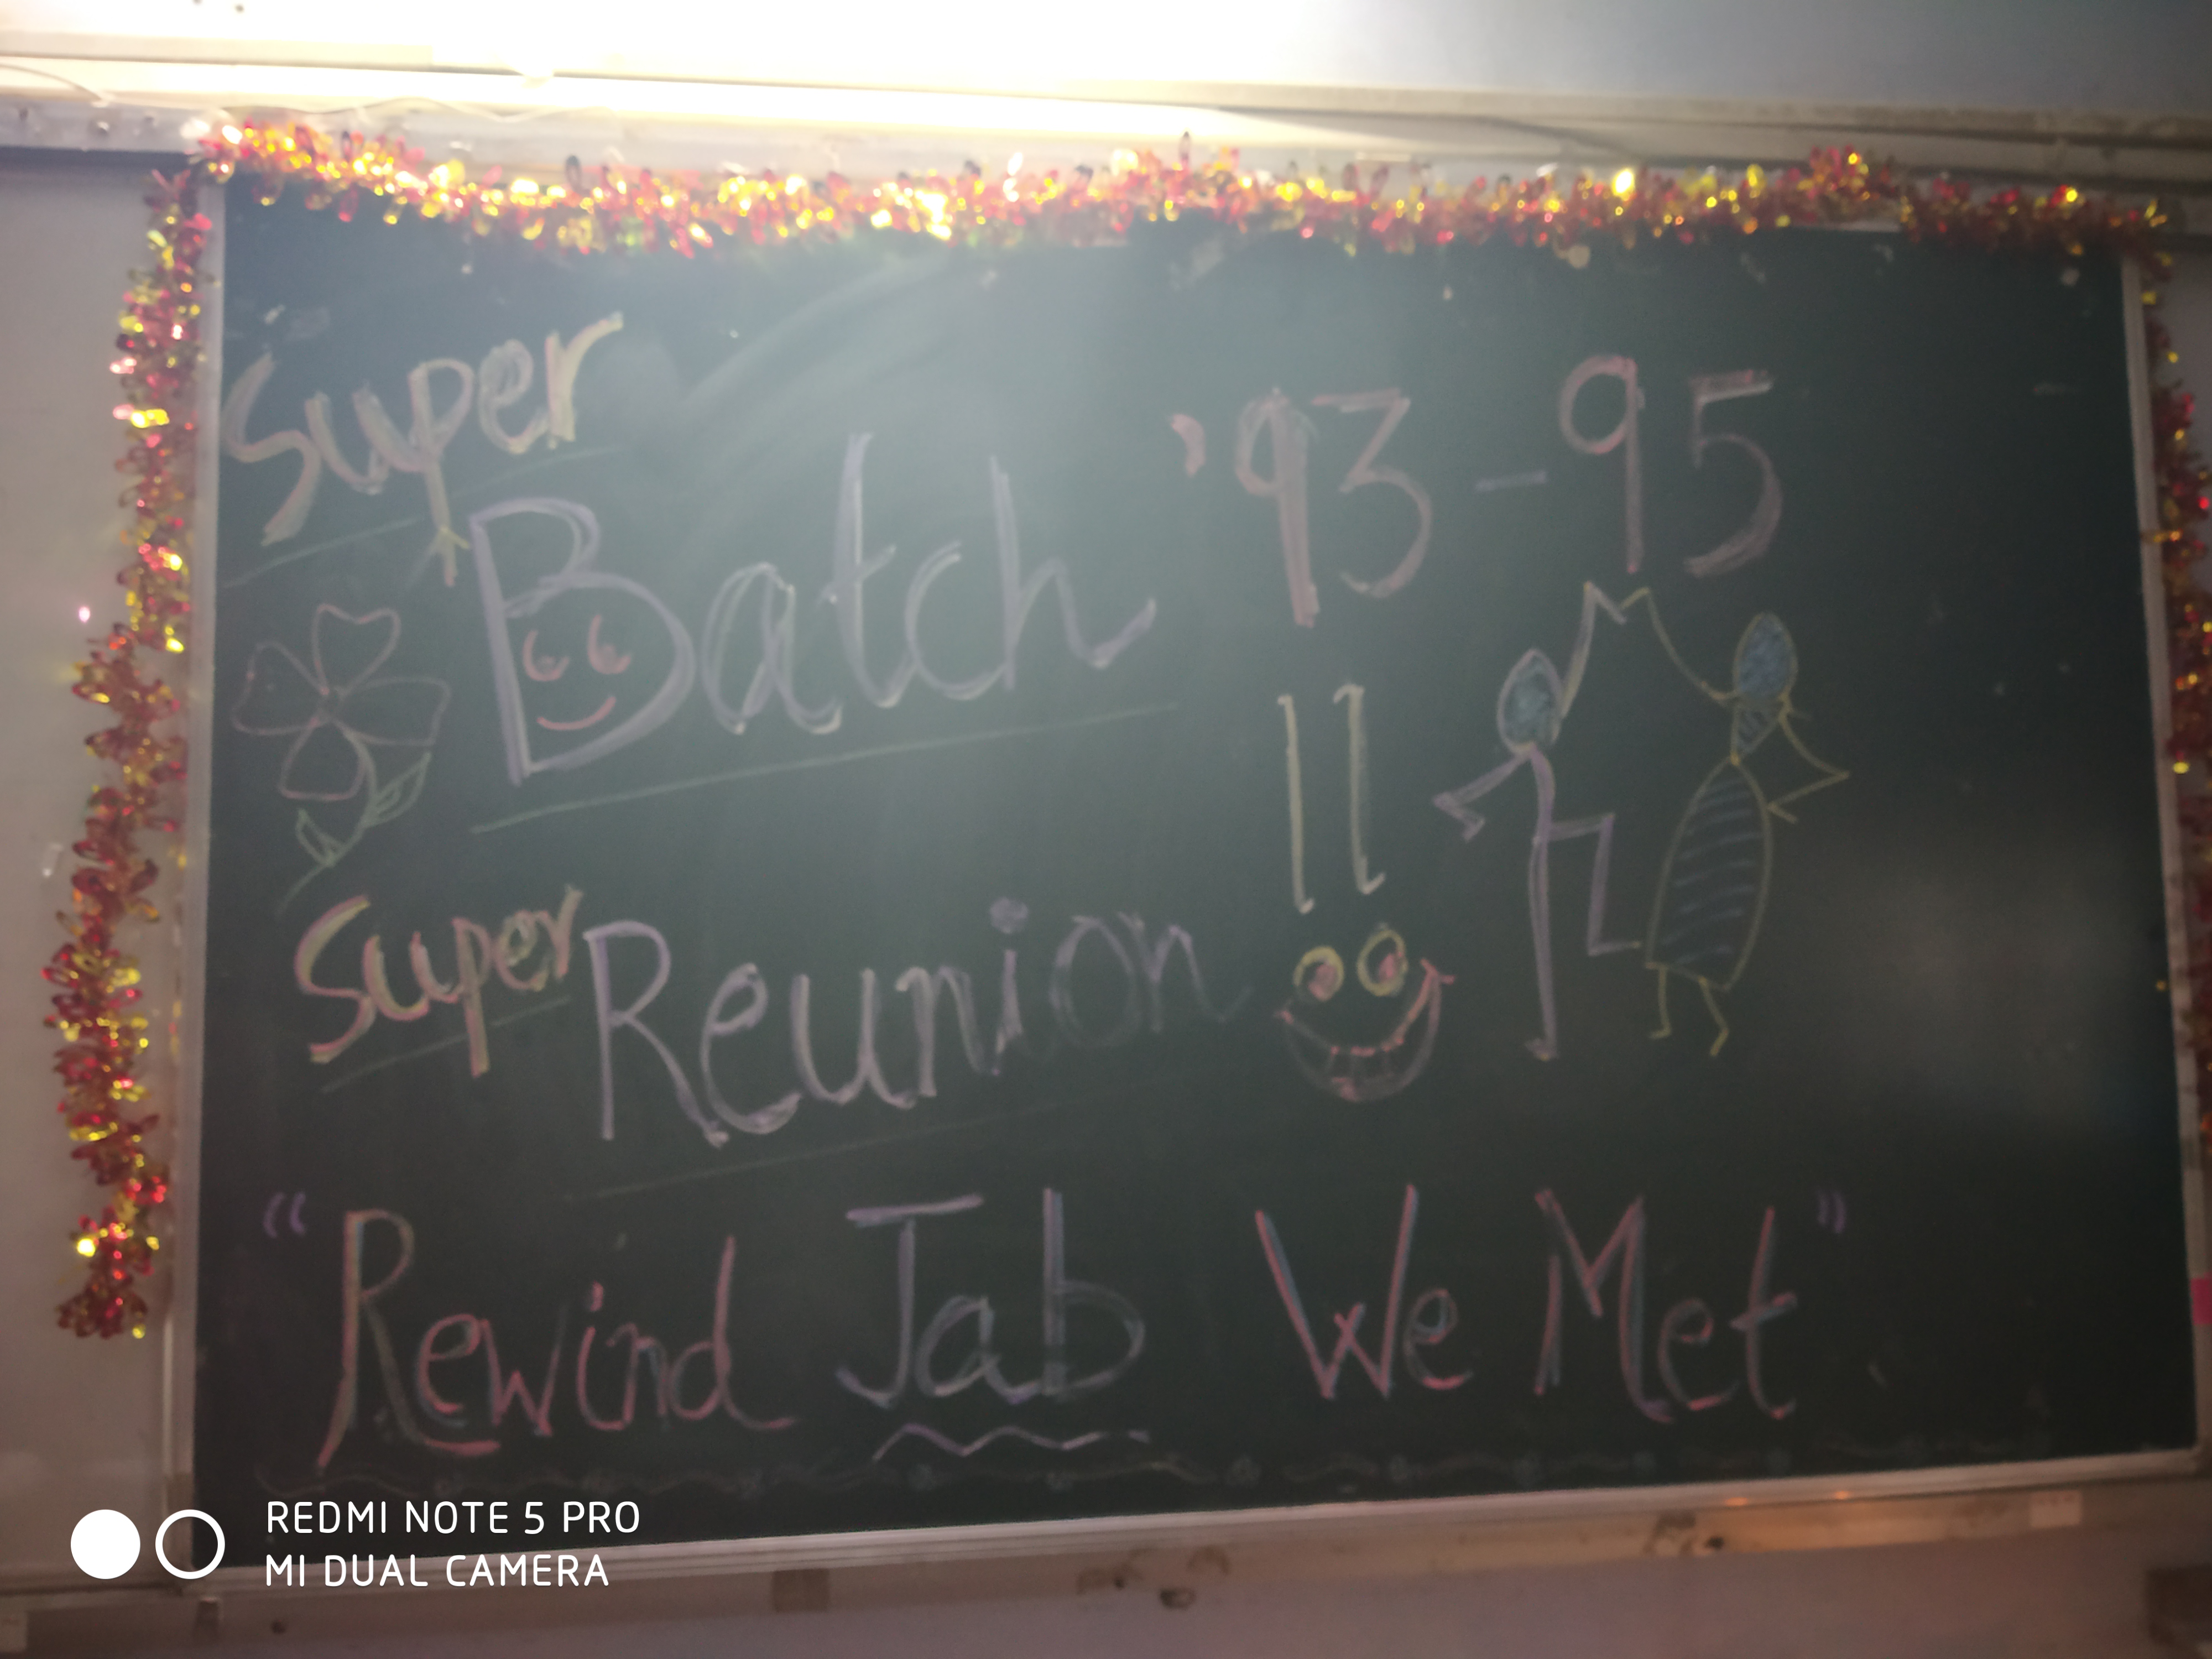 Super
Batch '93-95
Super Reunion !!
"Rewind Jab We Met"
REDMI NOTE 5 PRO
MI DUAL CAMERA